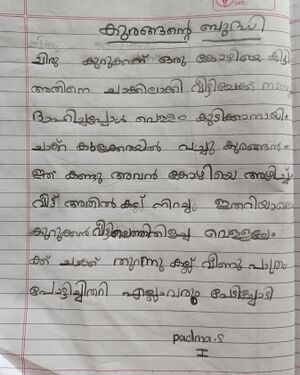 കുരങ്ങന്റെ ബുദ്ധി
ഒരു കുറുക്കന് ഒരു കോഴിയെ കിട്ടി
അതിനെ ചാക്കിലാക്കി വീട്ടിലേക്ക് നടന്നു
ദാഹിച്ചപ്പോൾ വെള്ളം കുടിക്കാനായി
ചാക്ക് കരക്കരയിൽ വച്ചു കുരങ്ങൻ
ഇത് കണ്ടു അവൻ കോഴിയെ അഴിച്ചു
വിട്ട് അതിൽ കല്ല് നിറച്ചു ഇതറിയാതെ
കുറുക്കൻ വീട്ടിലെത്തി തിളച്ച വെള്ളത്തിലേ
ക്ക് ചാക്ക് തുറന്നു കല്ല് വീണു പാത്രം
പൊട്ടിച്ചിതറി എല്ലാവരും പേടിച്ചോടി
padma.S
I